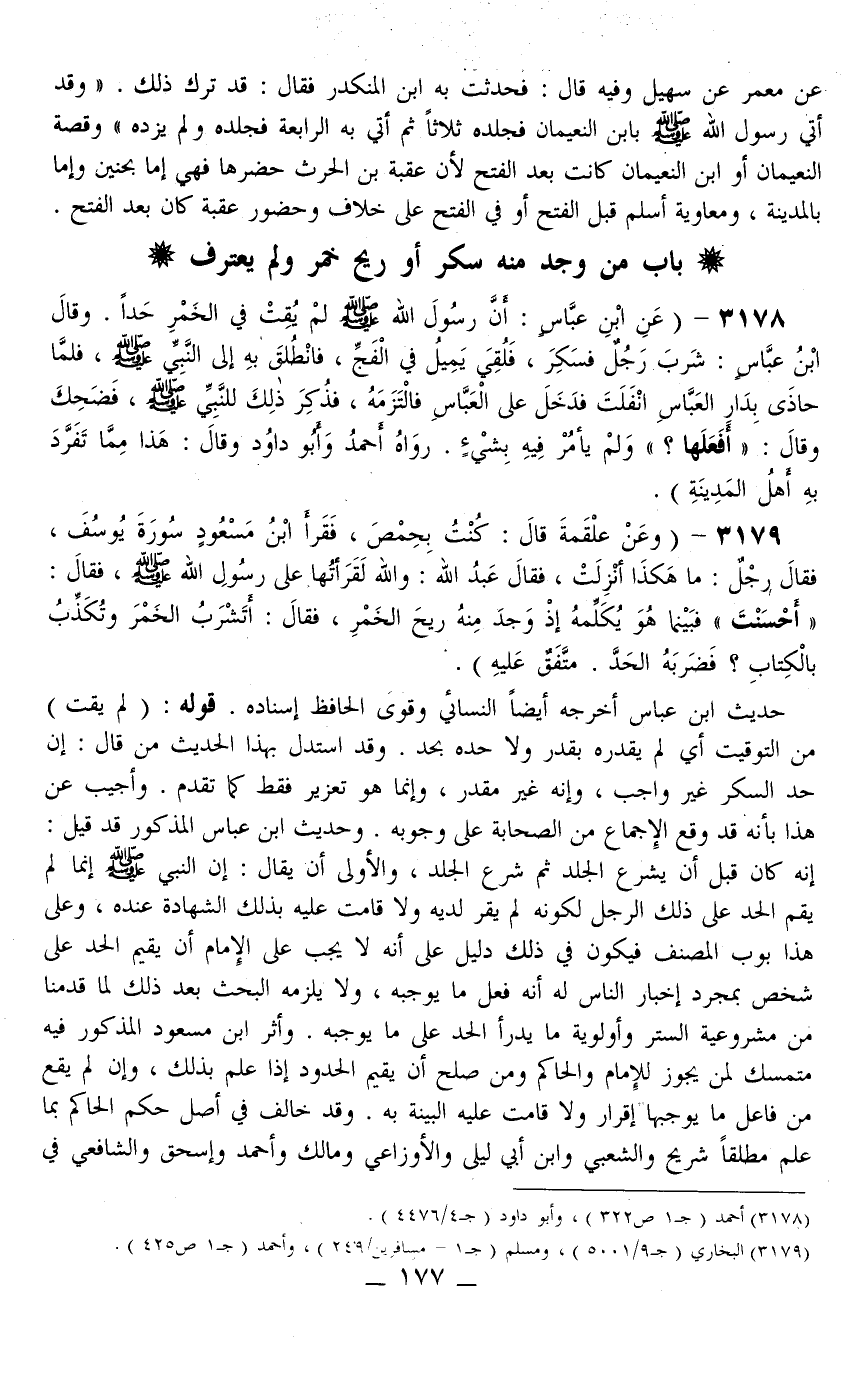 عن معمر عن سهيل وفيه قال : فحدثت به ابن المنكدر فقال : قد ترك ذلك . « وقد
أتي رسول الله ﷺ بابن النعيمان فجلده ثلاثاً ثم أتي به الرابعة فجلده ولم يزده » وقصة
النعيمان أو ابن النعيمان كانت بعد الفتح لأن عقبة بن الحرث حضرها فهي إما بحنين وإما
بالمدينة ، ومعاوية أسلم قبل الفتح أو في الفتح على خلاف وحضور عقبة كان بعد الفتح .
❋ باب من وجد منه سكر أو ريح خمر ولم يعترف ❋
٣١٧٨ – ( عَنِ ابْنِ عبَّاسٍ : أَنَّ رسُولَ الله ﷺ لمْ يُقِتْ في الخَمْرِ حَداً . وقالَ
ابْنُ عبَّاسٍ : شَربَ رَجُلٌ فسَكِرَ ، فَلُقِيَ يَمِيلُ في الْفَجِّ ، فانْطُلقَ بهِ إلى النَّبيِّ ﷺ ، فلمَّا
حاذَى بِدَارِ العَبَّاسِ انْفَلَتَ فدَخَلَ على الْعَبَّاسِ فالْتَزَمَهُ ، فذُكِرَ ذٰلِكَ للنَّبيِّ ﷺ ، فَضَحِكَ
وقالَ : « أَفَعَلَها ؟ » وَلمْ يأمُرْ فِيهِ بِشيْءٍ . رواهُ أَحمدُ وَأَبُو داوُد وقالَ : هَذا مِمَّا تَفَرَّدَ
بهِ أَهلُ المَدِينَةِ ) .
٣١٧٩ – ( وعَنْ علْقَمةَ قالَ : كُنْتُ بِحِمْصَ ، فَقَرأَ ابْنُ مَسْعُودٍ سُورَةَ يُوسُفَ ،
فقالَ رجُلٌ : ما هَكذَا أنْزِلَتْ ، فقالَ عَبدُ الله : والله لَقَرَأتُها على رسُولِ الله ﷺ ، فقالَ :
« أَحْسَنْتَ » فبَيْنا هُوَ يُكَلِّمهُ إذْ وَجدَ مِنهُ ريحَ الخَمْرِ ، فقالَ : أَتَشْرَبُ الخَمْرَ وتُكَذِّبُ
بالْكِتابِ ؟ فَضرَبَهُ الحَدَّ . متَّفَقٌ عَليهِ ) .
حديث ابن عباس أخرجه أيضاً النسائي وقوى الحافظ إسناده . قوله : ( لم يقت )
من التوقيت أي لم يقدره بقدر ولا حده بحد . وقد استدل بهذا الحديث من قال : إن
حد السكر غير واجب ، وإنه غير مقدر ، وإنما هو تعزير فقط كما تقدم . وأجيب عن
هذا بأنه قد وقع الإجماع من الصحابة على وجوبه . وحديث ابن عباس المذكور قد قيل :
إنه كان قبل أن يشرع الجلد ثم شرع الجلد ، والأولى أن يقال : إن النبي ﷺ إنما لم
يقم الحد على ذلك الرجل لكونه لم يقر لديه ولا قامت عليه بذلك الشهادة عنده ، وعلى
هذا بوب المصنف فيكون في ذلك دليل على أنه لا يجب على الإمام أن يقيم الحد على
شخص بمجرد إخبار الناس له أنه فعل ما يوجبه ، ولا يلزمه البحث بعد ذلك لما قدمنا
من مشروعية الستر وأولوية ما يدرأ الحد على ما يوجبه . وأثر ابن مسعود المذكور فيه
متمسك لمن يجوز للإمام والحاكم ومن صلح أن يقيم الحدود إذا علم بذلك ، وإن لم يقع
من فاعل ما يوجبها إقرار ولا قامت عليه البينة به . وقد خالف في أصل حكم الحاكم بما
علم مطلقاً شريح والشعبي وابن أبي ليلى والأوزاعي ومالك وأحمد وإسحق والشافعي في
(٣١٧٨) أحمد ( جـ١ ص٣٢٢ ) ، وأبو داود ( جـ٤/٤٤٧٦ ) .
(٣١٧٩) البخاري ( جـ٩/٥٠٠١ ) ، ومسلم ( جـ١ – مسافرين/٢٤٩ ) ، وأحمد ( جـ١ ص٤٢٥ ) .
_ ١٧٧ _